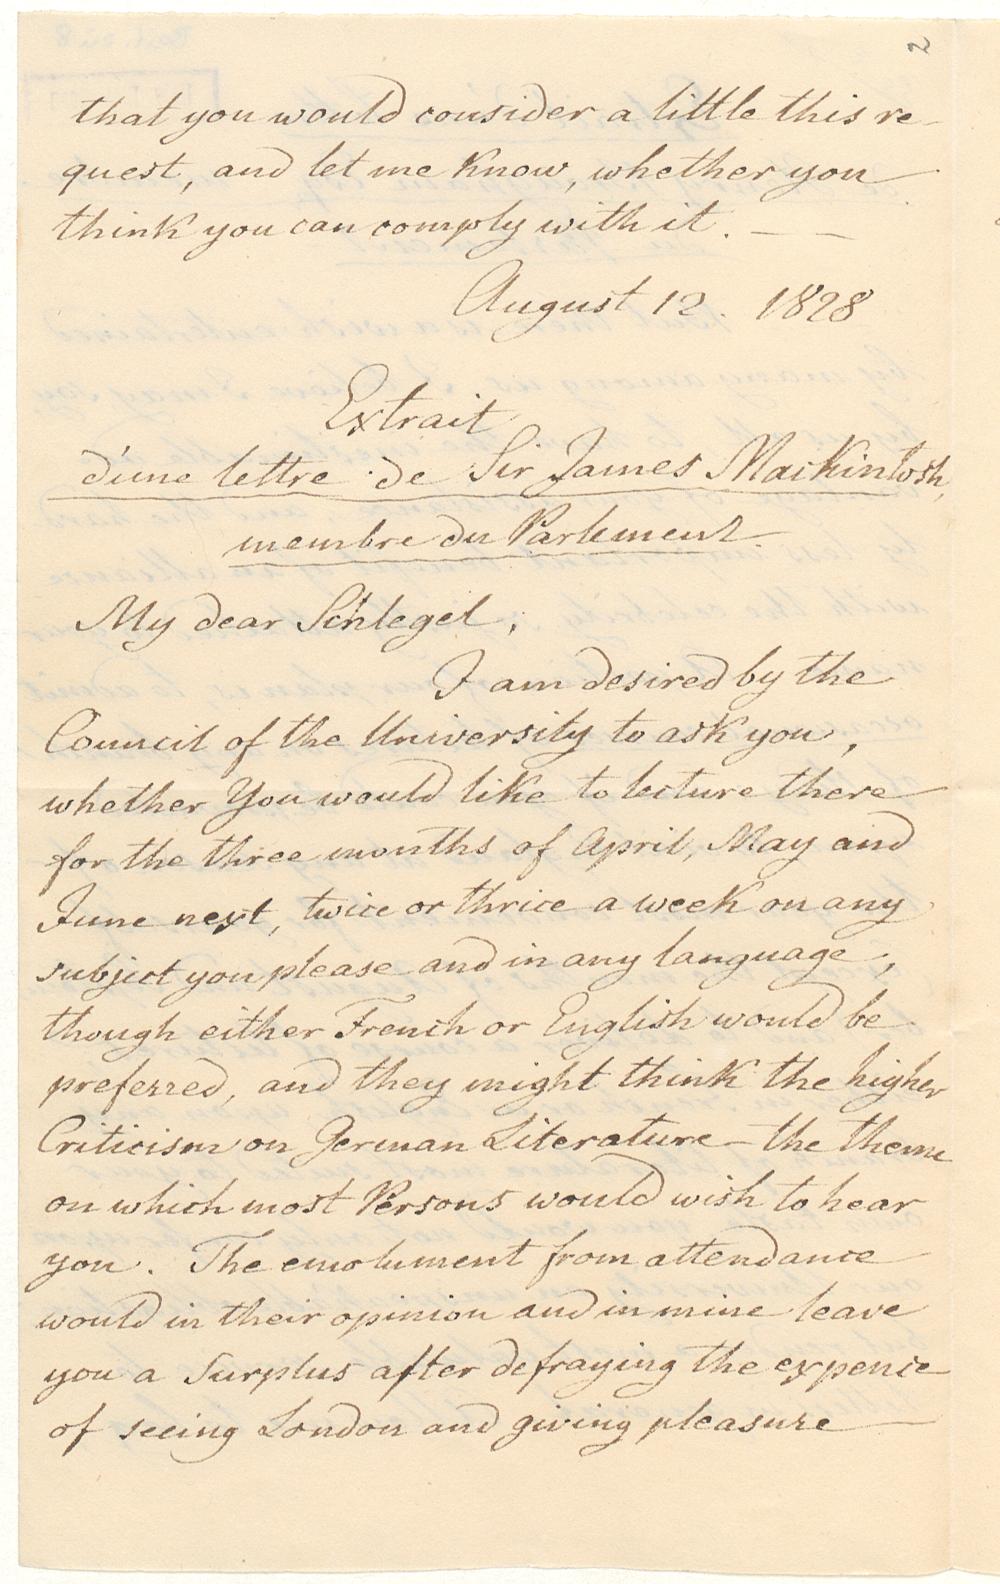 2
that you would consider a little this re-
quest, and let me know, whether you
think you can comply with it. — —
August 12. 1828
Extrait
d'une lettre de Sir James Mackintosh,
membre du Parlement.
My dear Schlegel,
I am desired by the
Council of the University to ask you,
whether You would like to lecture there
for the three months of April, May and
June next, twice or thrice a week on any
subject you please and in any language,
though either French or English would be
preferred, and they might think the higher
Criticism on German Literature – the theme
on which most Persons would wish to hear
you. The emolument from attendance
would in their opinion and in mine leave
you a Surplus after defraying the expence
of seeing London and giving pleasure